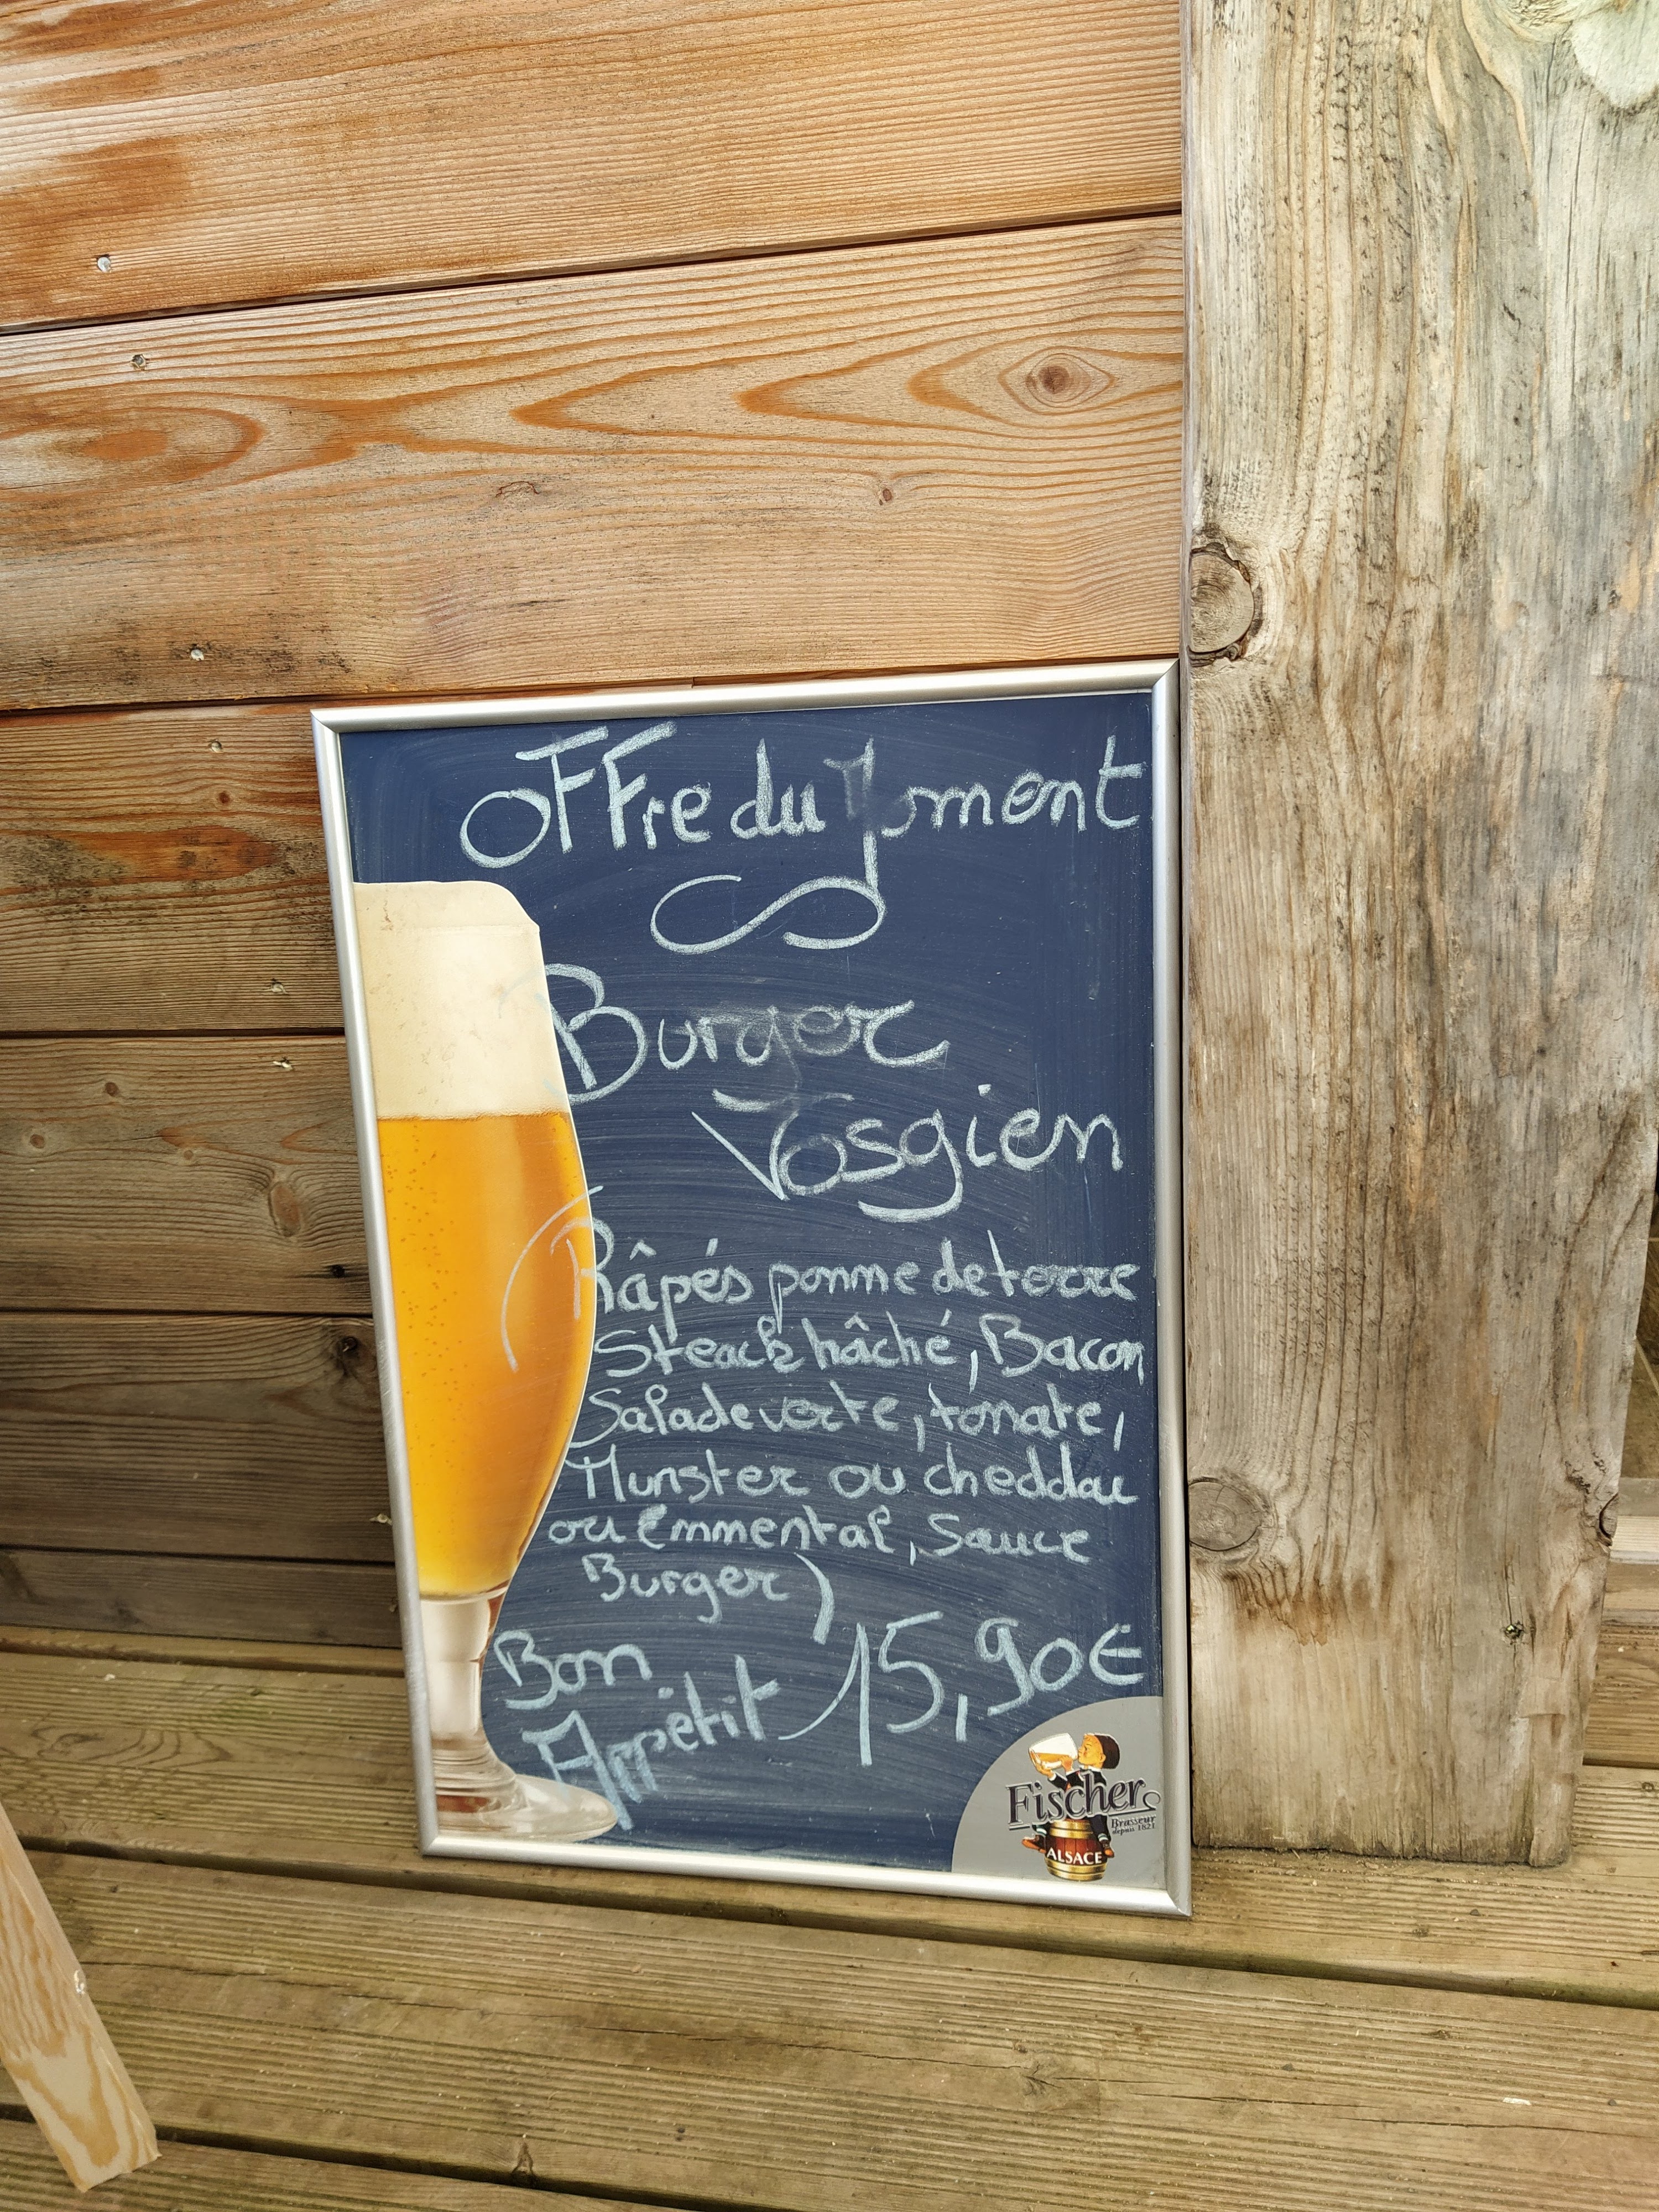 OFFre du moment
Burger
Vosgien
(Râpés pomme de terre
Steack hâché, Bacon
Salade verte, tomate,
Munster ou cheddar
ou Emmental, Sauce
Burger)
Bon
Appétit
15,90€
Fischer
Brasseur
depuis 1821
ALSACE